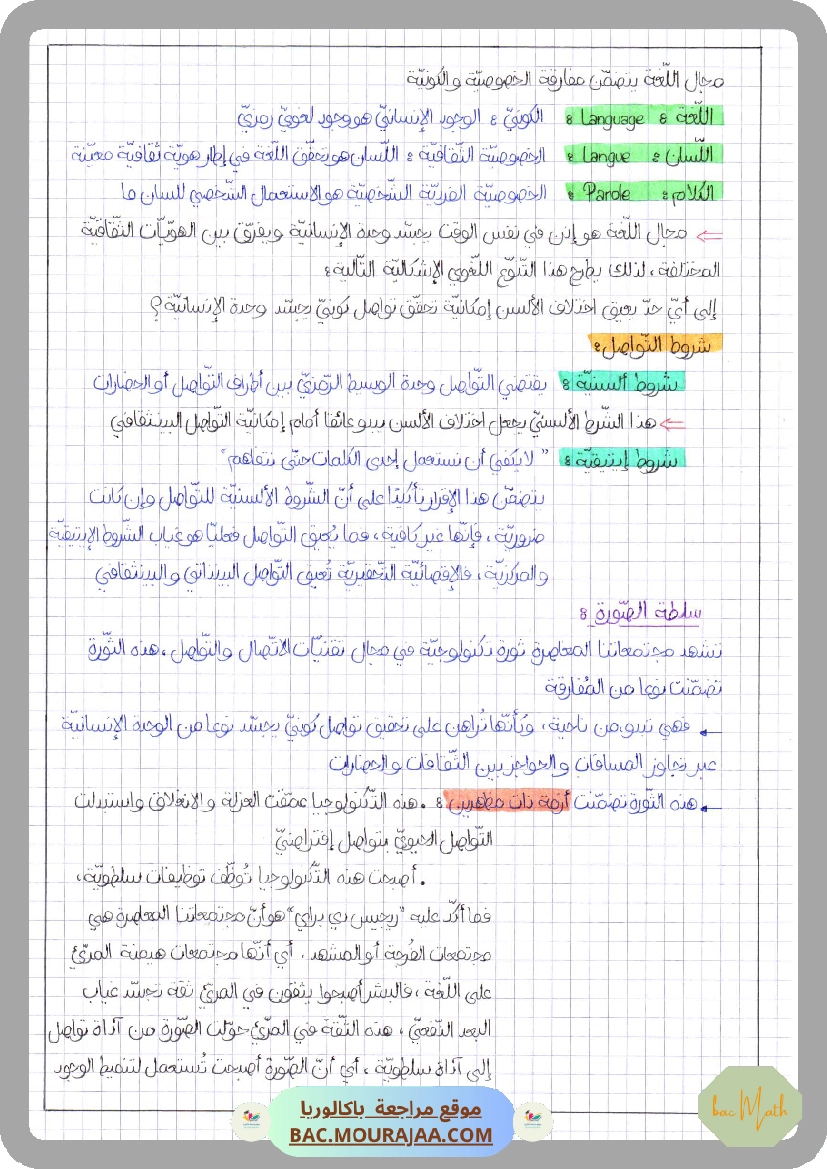 مجال اللّغة يتضمّن مفارقة الخصوصيّة والكونيّة
اللّغة : Language : الكونيّ : الوجود الإنسانيّ هو وجود لغويّ رمزيّ
اللّسان : Langue : الخصوصيّة الثّقافيّة : اللّسان هو تحقّق اللّغة في إطار هويّة ثقافيّة معيّنة
الكلام : Parole : الخصوصيّة الفرديّة الشّخصيّة هو الاستعمال الشّخصي للسان ما
⇐ مجال اللّغة هو إذن في نفس الوقت يجسّد وحدة الإنسانيّة ويفرّق بين الهويّات الثّقافيّة
المختلفة، لذلك يطرح هذا التّنوّع اللّغوي الإشكاليّة التّالية :
إلى أيّ حدّ يعيق اختلاف الألسن إمكانيّة تحقّق تواصل كونيّ يجسّد وحدة الإنسانيّة ؟
شروط التّواصل :
شروط ألسنيّة : يقتضي التّواصل وحدة الوسيط الرّمزيّ بين أطراف التّواصل أو الحضارات
⇐ هذا الشّرط الألسنيّ يجعل اختلاف الألسن يبدو عائقا أمام إمكانيّة التّواصل البينثقافي
شروط إيتيقيّة : " لا يكفي أن نستعمل إحدى الكلمات حتّى نتفاهم"
يتضمّن هذا الإقرار تأكيدا على أنّ الشّروط الألسنيّة للتّواصل وإن كانت
ضروريّة، فإنّها غير كافية، فما يُعيق التّواصل فعليّا هو غياب الشّروط الإيتيقيّة
والمركزيّة، فالإقصائيّة التّحقيريّة تُعيق التّواصل البينذاتي والبينثقافي
سلطة الصّورة :
تشهد مجتمعاتنا المعاصرة ثورة تكنولوجيّة في مجال تقنيّات الاتّصال والتّواصل، هذه الثّورة
تضمّنت نوعا من المُفارقة
فهي تبدو من ناحية، وكأنّها تُراهن على تحقيق تواصل كونيّ يجسّد نوعا من الوحدة الإنسانيّة
عبر تجاوز المسافات والحواجز بين الثّقافات والحضارات
هذه الثّورة تضمّنت أزمة ذات مظهرين : . هذه التّكنولوجيا عمّقت العزلة والانغلاق واستبدلت
التّواصل الحيويّ بتواصل إفتراضيّ
. أصبحت هذه التّكنولوجيا تُوظّف توظيفات سلطويّة،
فما أكّد عليه "ريجيس دي براي" هو أنّ مجتمعاتنا المعاصرة هي
مجتمعات الفُرجة أو المشهد، أي أنّها مجتمعات هيمنة المرئيّ
على اللّغة، فالبشر أصبحوا يثقون في المرئيّ ثقة تجسّد غياب
البعد النّقديّ، هذه الثّقة في المرّئيّ حوّلت الصّورة من آداة تواصل
إلى آداة سلطويّة، أي أنّ الصّورة أصبحت تُستعمل لتنميط الوجود
موقع مراجعة باكالوريا
BAC.MOURAJAA.COM
bac Math